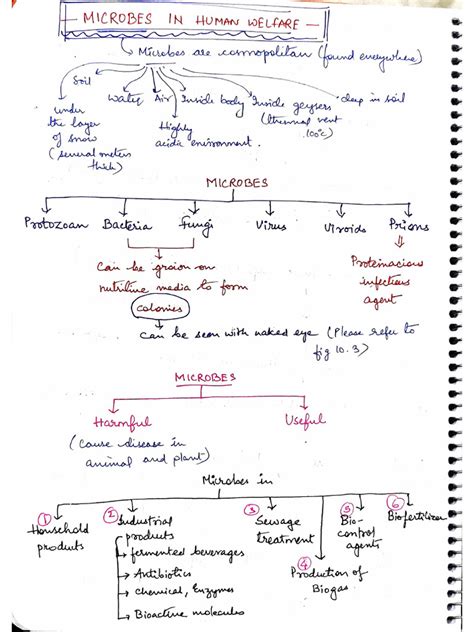 — MICROBES IN HUMAN WELFARE —
Microbes are cosmopolitan (found everywhere)
Soil
Water Air Inside body Inside geysers deep in soil
(thermal vent
100°C)
under
the layer
of snow
(several meters
thick)
Highly
acidic environment.
MICROBES
Protozoan Bacteria Fungi Virus Viroids Prions
can be grown on
nutritive media to form
colonies
Proteinacious
infectious
agent
can be seen with naked eye (Please refer to
fig 10.3)
MICROBES
Harmful Useful
(cause disease in
animal and plant)
Microbes in
① Household
products
② Industrial
products
→ fermented beverages
→ Antibiotics
→ chemical, Enzymes
→ Bioactive molecules
③ Sewage
treatment
④ Production of
Biogas
⑤ Bio-
control
agents
⑥ Biofertilizer